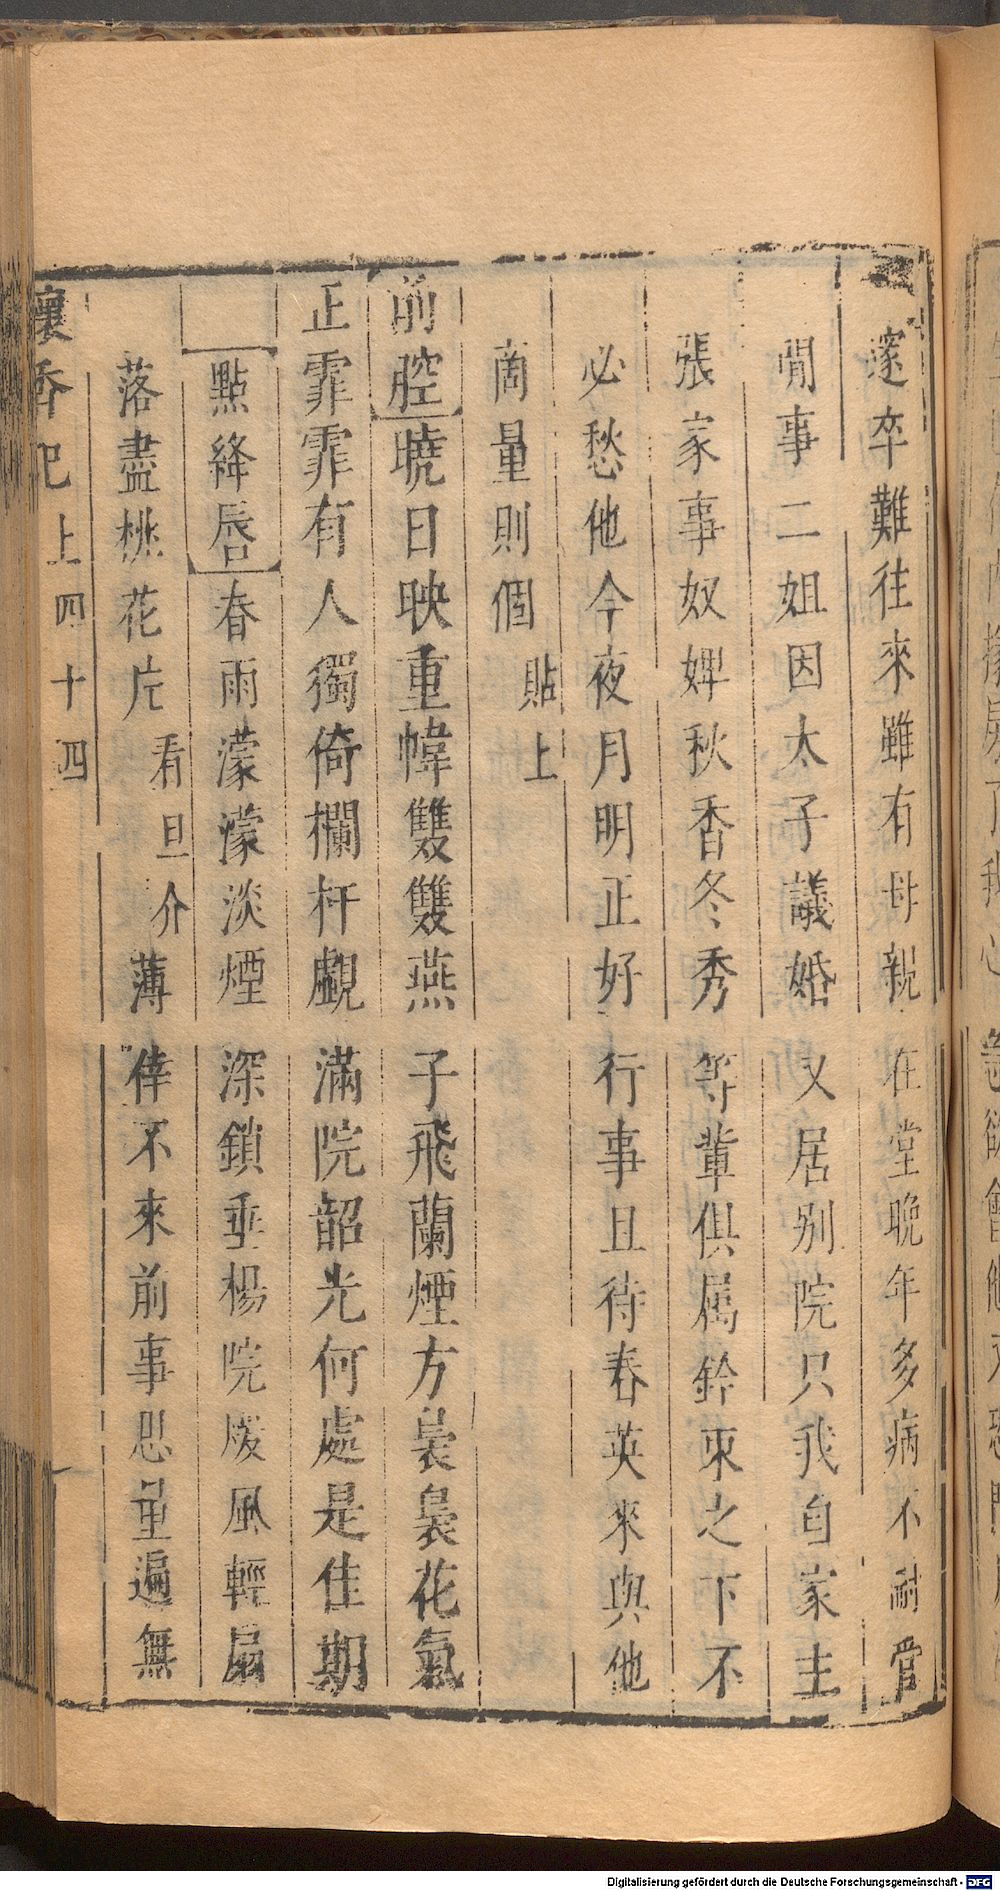 邃卒難往來雖有母親在堂晚年多病不耐管
閒事二姐因太子議婚又居別院只我自家主
張家事奴婢秋香冬秀等輩俱属鈴束之下不
必愁他今夜月明正好行事且待春英來與他
啇量則個貼上
前腔曉日映重幃雙雙燕子飛蘭煙方裊裊花氣
正霏霏有人獨倚欄杆覷滿院韶光何處是佳期
點絳唇春雨濛濛淡煙深鎖垂楊院废風輕扇
落盡桃花片看旦介薄倖不來前事思量遍無
懷香記 上四十四
Digitalisierung gefördert durch die Deutsche Forschungsgemeinschaft - DFG